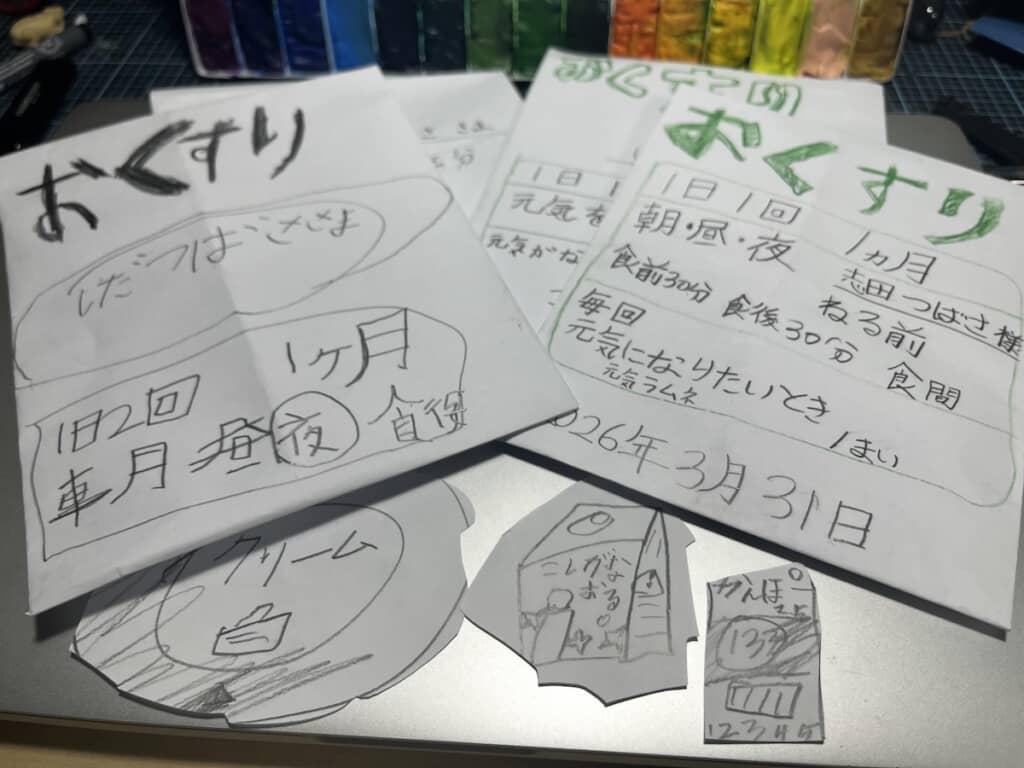 おくすり
しだつばささま
1日2回 1ヶ月
昼 夜 食後
おくすり
1日 1回 1ヵ月
朝・昼・夜 志田つばさ様
食前30分 食後30分 ねる前 食間
毎回
元気になりたいとき
元気ラムネ 1まい
2026年3月31日
1日 1
元気を
元気がな
クリーム
こしが
なおる
かんぽー
12345